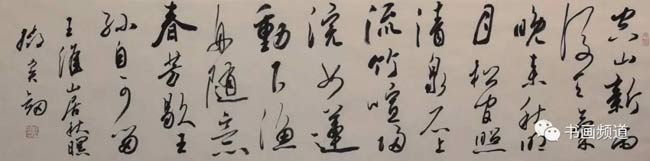 空山新雨
後天氣
晚来秋明
月松间照
清泉石上
流竹喧归
浣女蓮
動下漁
舟随意
春芳歇王
孙自可留
王維山居秋暝
书画频道